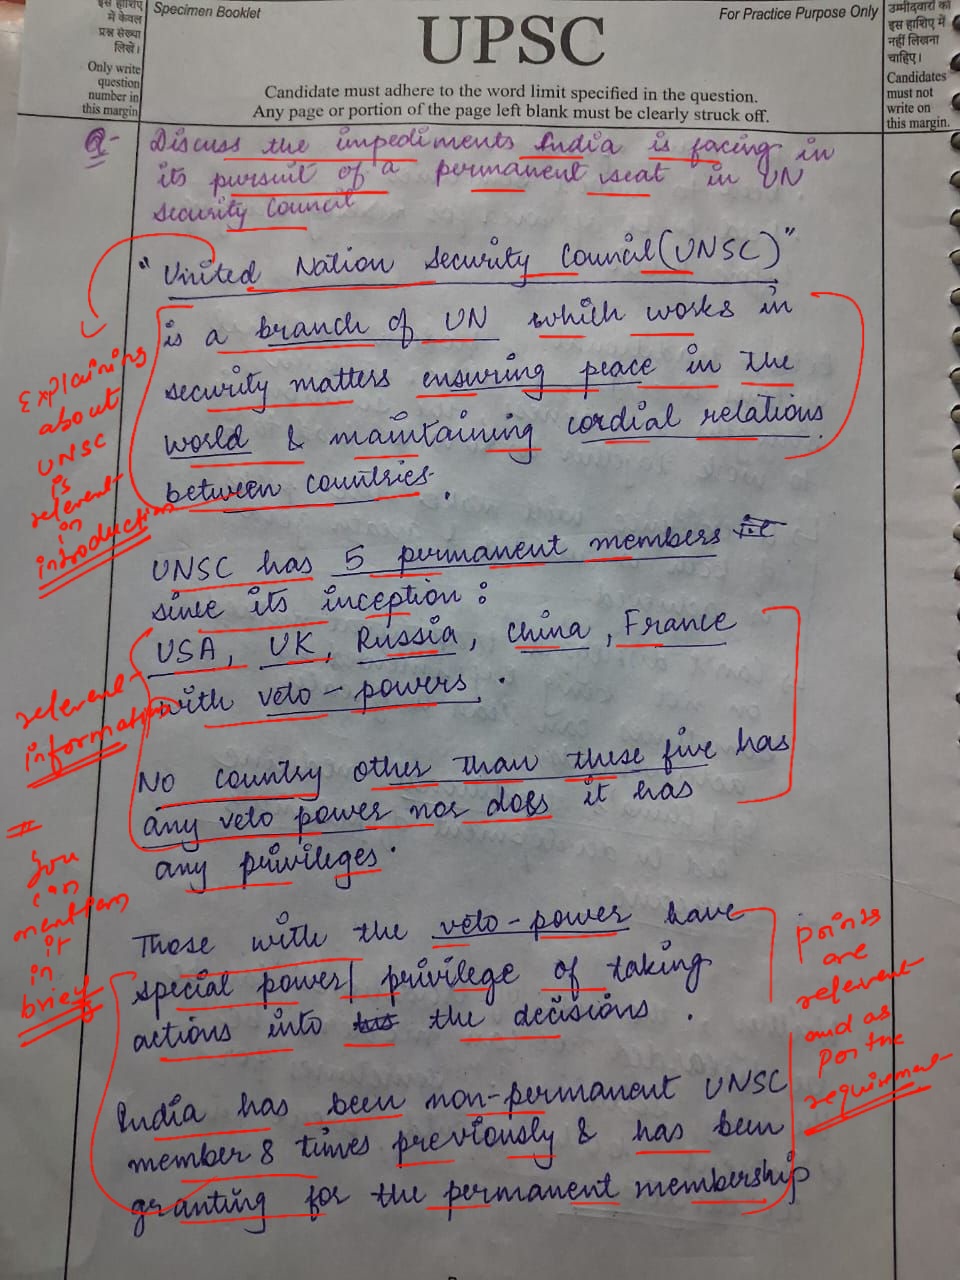 इस हाशिए
में केवल
प्रश्न संख्या
लिखें।
Only write
question
number in
this margin
Specimen Booklet
For Practice Purpose Only
UPSC
Candidate must adhere to the word limit specified in the question.
Any page or portion of the page left blank must be clearly struck off.
उम्मीदवारों को
इस हाशिए में
नहीं लिखना
चाहिए।
Candidates
must not
write on
this margin.
Q- Discuss the impediments India is facing in
its pursuit of a permanent seat in UN
security Council
"United Nation security Council (UNSC)"
is a branch of UN which works in
security matters ensuring peace in the
world & maintaining cordial relations
between countries.
Explaining
about
UNSC
is
relevent
in
introduction
UNSC has 5 permanent members
since its inception :
USA, UK, Russia, China, France
with veto-powers.
relevent
information
No country other than these five has
any veto power nor does it has
any privileges.
#
you
can
mention
it
in
brief
Those with the veto-power have
special power/privilege of taking
actions into the decisions.
points
are
relevent
and as
per the
requirement
India has been non-permanent UNSC
member 8 times previously & has been
granting for the permanent membership